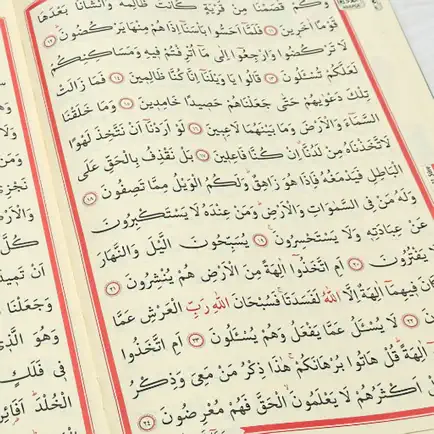 وَكَمْ قَصَمْنَا مِنْ قَرْيَةٍ كَانَتْ ظَالِمَةً وَاَنْشَأْنَا بَعْدَهَا
قَوْمًا اٰخَرٖينَ ﴿١١﴾ فَلَمَّٓا اَحَسُّوا بَأْسَنَٓا اِذَا هُمْ مِنْهَا يَرْكُضُونَ ﴿١٢﴾
لَا تَرْكُضُوا وَارْجِعُٓوا اِلٰى مَٓا اُتْرِفْتُمْ فٖيهِ وَمَسَاكِنِكُمْ
لَعَلَّكُمْ تُسْـَٔلُونَ ﴿١٣﴾ قَالُوا يَا وَيْلَنَٓا اِنَّا كُنَّا ظَالِمٖينَ ﴿١٤﴾ فَمَا زَالَتْ
تِلْكَ دَعْوٰيهُمْ حَتّٰى جَعَلْنَاهُمْ حَصٖيدًا خَامِدٖينَ ﴿١٥﴾ وَمَا خَلَقْنَا
السَّمَٓاءَ وَالْاَرْضَ وَمَا بَيْنَهُمَا لَاعِبٖينَ ﴿١٦﴾ لَوْ اَرَدْنَٓا اَنْ نَتَّخِذَ لَهْوًا
لَاتَّخَذْنَاهُ مِنْ لَدُنَّٓا اِنْ كُنَّا فَاعِلٖينَ ﴿١٧﴾ بَلْ نَقْذِفُ بِالْحَقِّ عَلَى
الْبَاطِلِ فَيَدْمَغُهُ فَاِذَا هُوَ زَاهِقٌ وَلَكُمُ الْوَيْلُ مِمَّا تَصِفُونَ ﴿١٨﴾
وَلَهُ مَنْ فِي السَّمٰوَاتِ وَالْاَرْضِ وَمَنْ عِنْدَهُ لَا يَسْتَكْبِرُونَ
عَنْ عِبَادَتِهٖ وَلَا يَسْتَحْسِرُونَ ﴿١٩﴾ يُسَبِّحُونَ الَّيْلَ وَالنَّهَارَ
لَا يَفْتُرُونَ ﴿٢٠﴾ اَمِ اتَّخَذُٓوا اٰلِهَةً مِنَ الْاَرْضِ هُمْ يُنْشِرُونَ ﴿٢١﴾
كَانَ فٖيهِمَٓا اٰلِهَةٌ اِلَّا اللّٰهُ لَفَسَدَتَا فَسُبْحَانَ اللّٰهِ رَبِّ الْعَرْشِ عَمَّا
﴿٢٢﴾ لَا يُسْـَٔلُ عَمَّا يَفْعَلُ وَهُمْ يُسْـَٔلُونَ ﴿٢٣﴾ اَمِ اتَّخَذُوا
اٰلِهَةً قُلْ هَاتُوا بُرْهَانَكُمْ هٰذَا ذِكْرُ مَنْ مَعِيَ وَذِكْرُ
اَكْثَرُهُمْ لَا يَعْلَمُونَ الْحَقَّ فَهُمْ مُعْرِضُونَ ﴿٢٤﴾